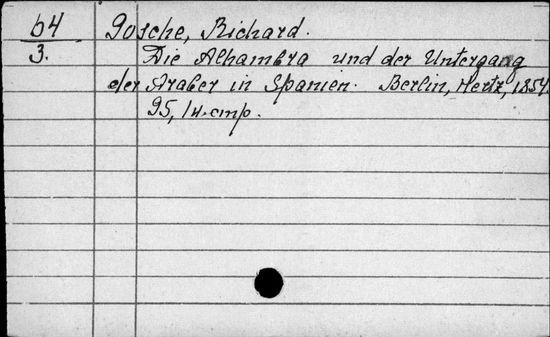 64 Gosche, Richard.
3. Die Alhambra und der Untergang
der Araber in Spanien. Berlin, Hertz, 1854.
95, 14. cmp.